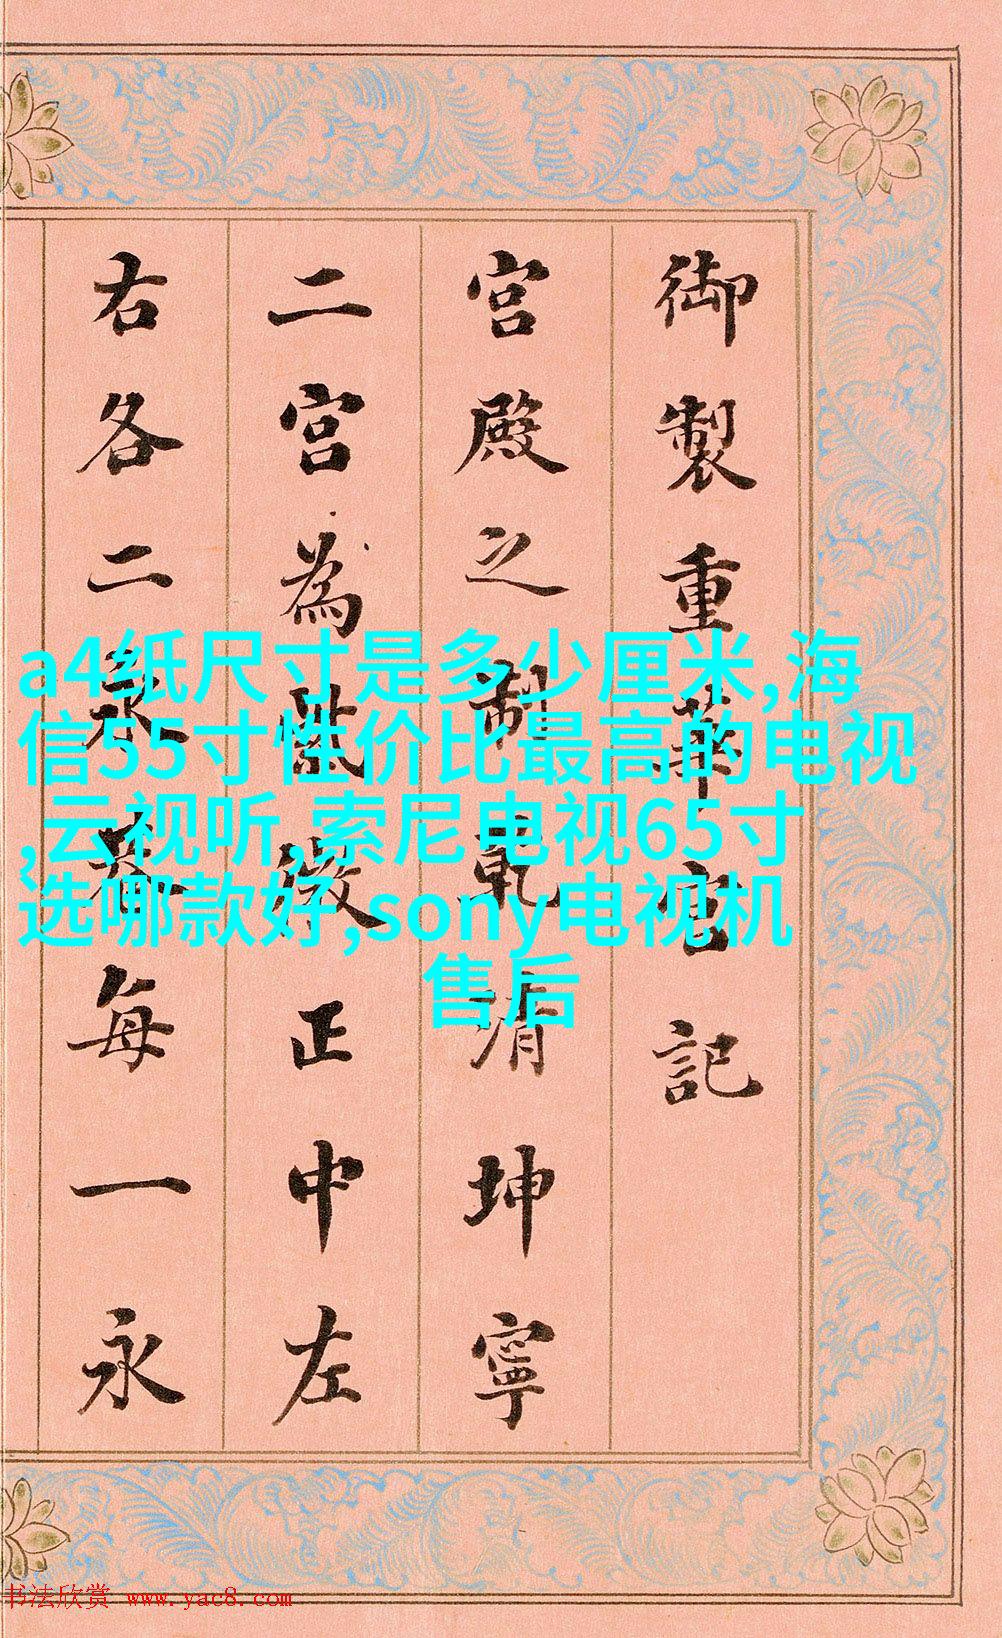 御製重華宮記
宮殿之制乾清坤寧
二宮為陛後正中左
右各二永巷每一永
a4纸尺寸是多少厘米,海
信55寸性价比最高的电视
,云视听,索尼电视65寸
选哪款好,sony电视机
售后
书法欣赏 www.yac8.com